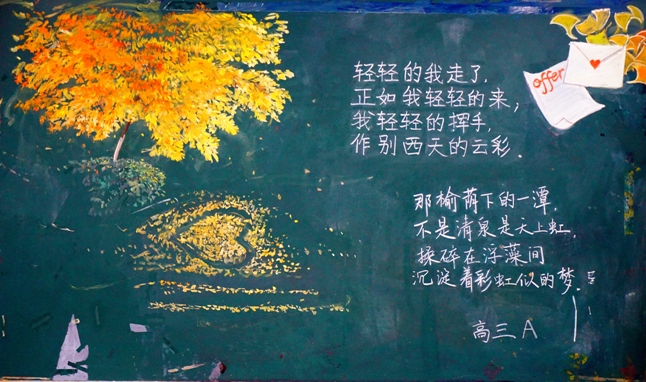 offer
轻轻的我走了,
正如我轻轻的来;
我轻轻的挥手,
作别西天的云彩.
那榆荫下的一潭,
不是清泉是天上虹,
揉碎在浮藻间
沉淀着彩虹似的梦.
高三A